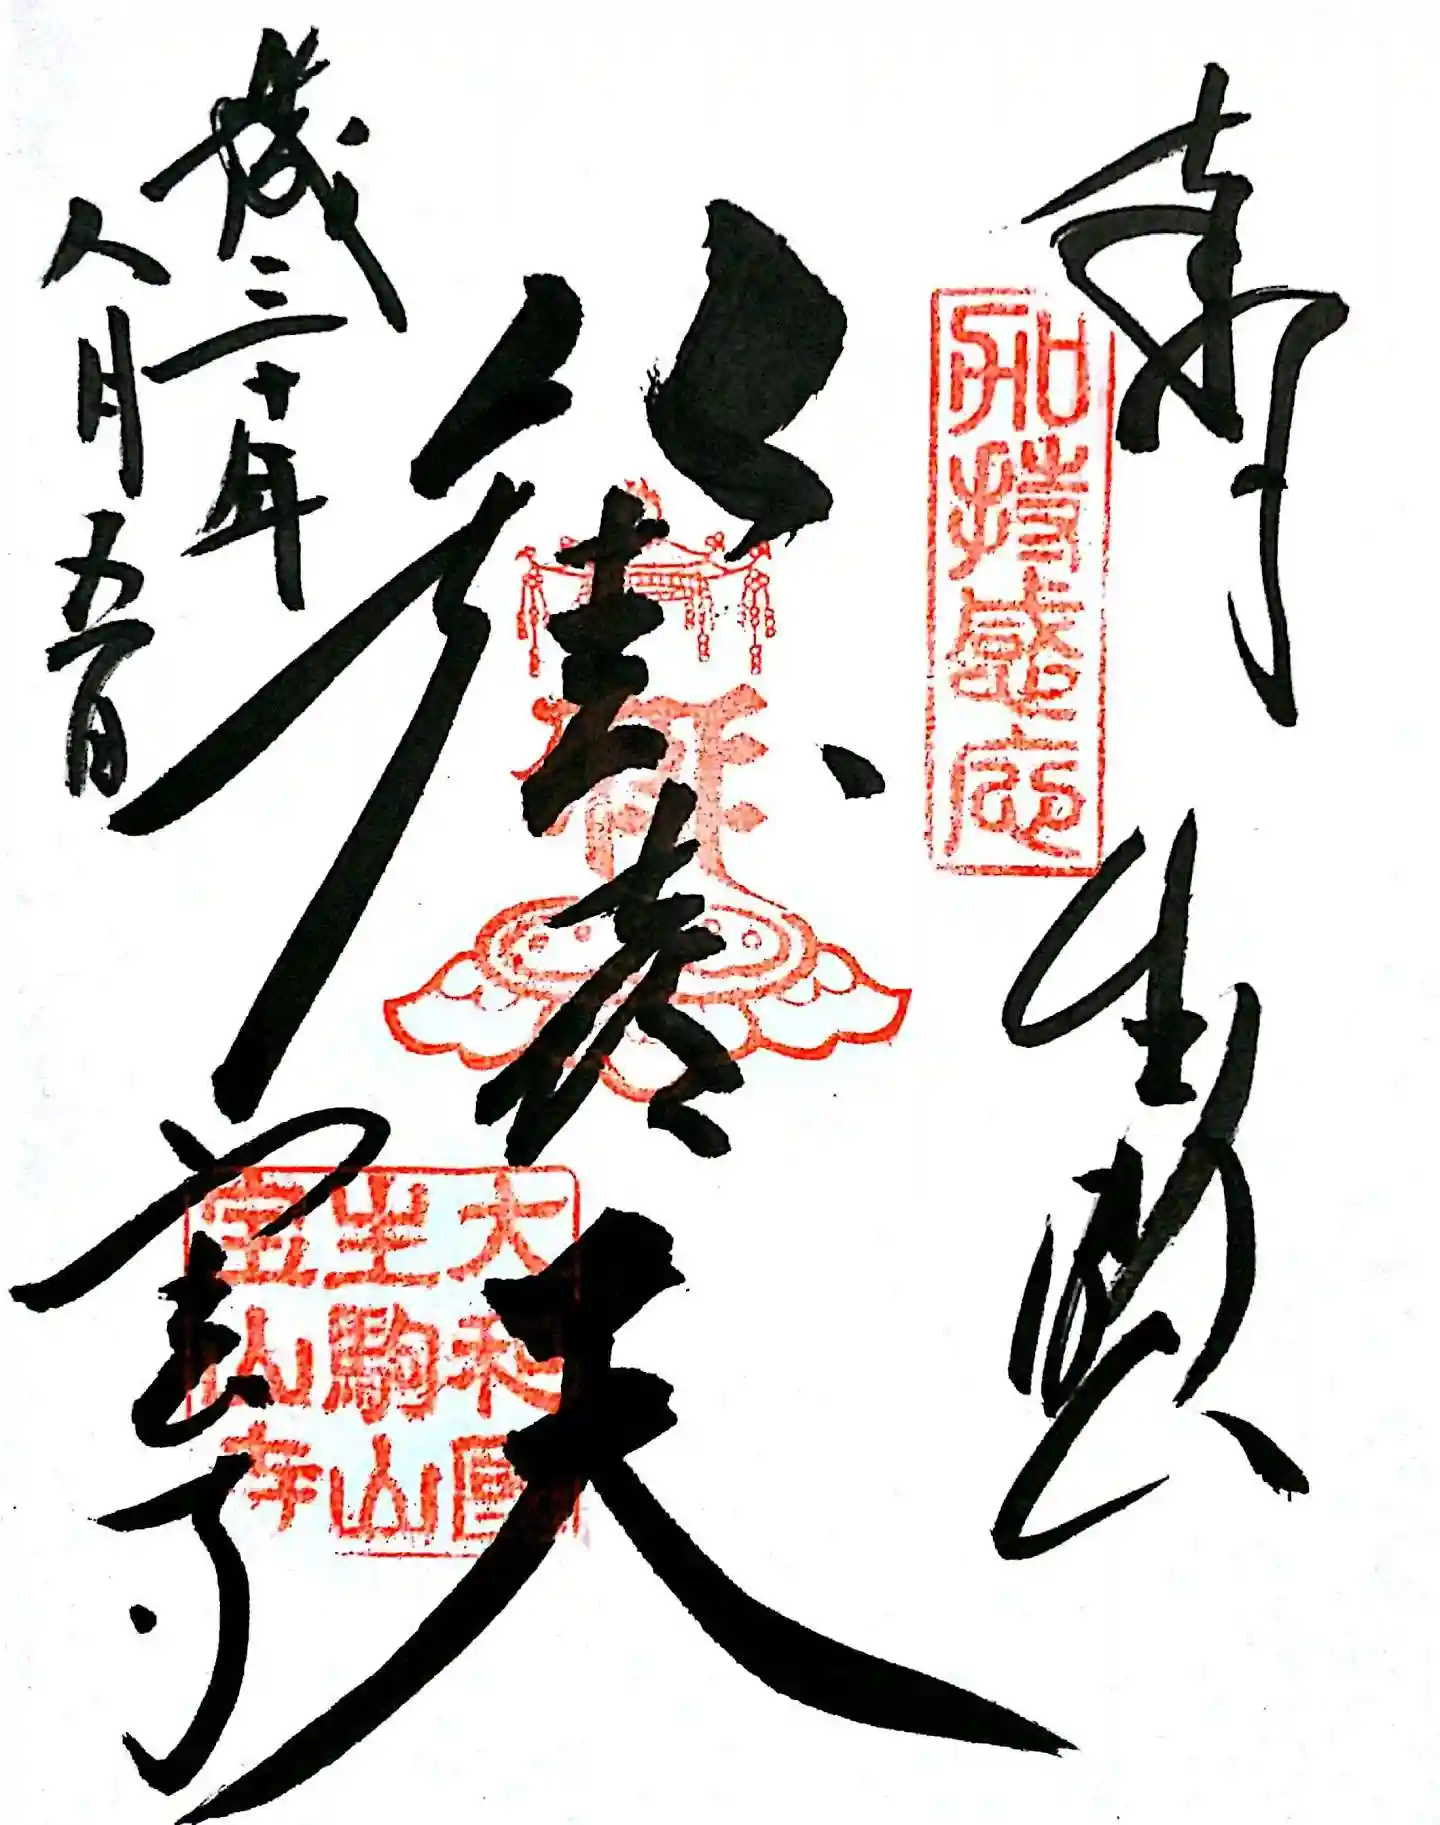 奉拝
生駒山
加持感応
歓喜天
大和國
生駒山
宝山寺
宝山寺
平成三十年
八月五日